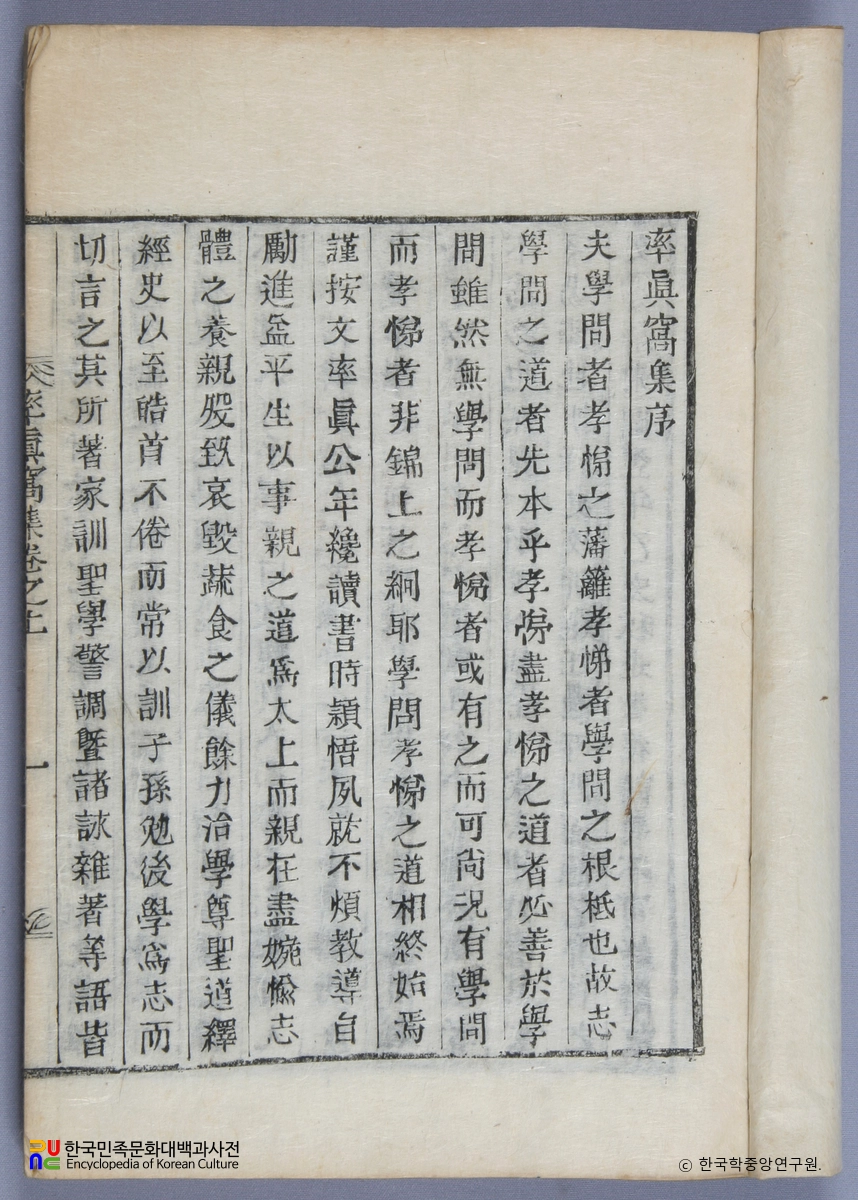 率眞窩集序
夫學問者孝悌之藩籬孝悌者學問之根柢也故志
學問之道者先本乎孝悌盡孝悌之道者必善於學
問雖然無學問而孝悌者或有之而可尙況有學問
而孝悌者非錦上之絅耶學問孝悌之道相終始焉
謹按文率眞公年纔讀書時穎悟夙就不煩教導自
勵進益平生以事親之道爲太上而親在盡婉愉志
體之養親歿致哀毀蔬食之儀餘力治學尊聖道繹
經史以至皓首不倦而常以訓子孫勉後學爲志而
切言之其所著家訓聖學警調曁諸詠雜著等語皆
率眞窩集卷之上
一
한국민족문화대백과사전
Encyclopedia of Korean Culture
© 한국학중앙연구원.